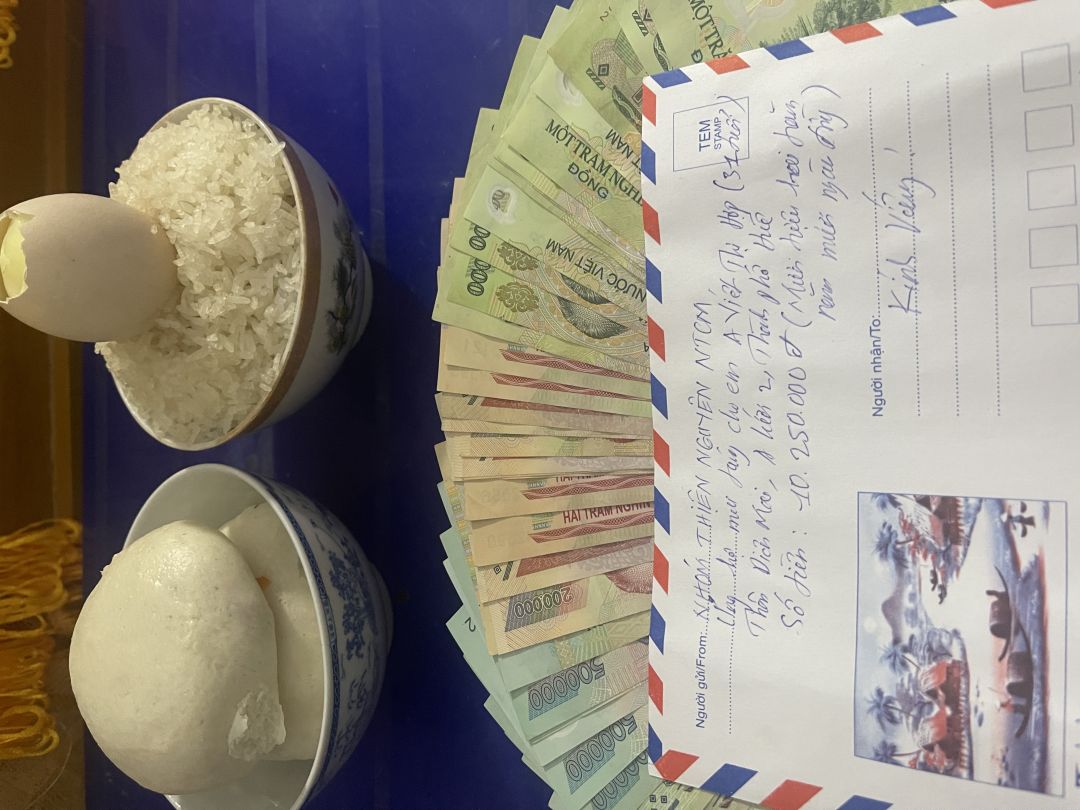 TEM
STAMP
Người gửi/From: NHÓM THIỆN NGUYỆN NTCM,
Ủng hộ mai táng cho em A Việt Thị Hợp (31 tuổi)
Thôn Diên Mai, A lưới 2, Thành phố Huế
Số tiền: 10.250.000 đ (Mười triệu hai trăm
năm mươi ngàn đồng)
Người nhận/To:
Kính Viếng!
MỘT TRĂM
MỘT TRĂM NGHÌN
ĐỒNG
NƯỚC VIỆT NAM
HAI TRĂM NGHÌN
200000
500000
500000